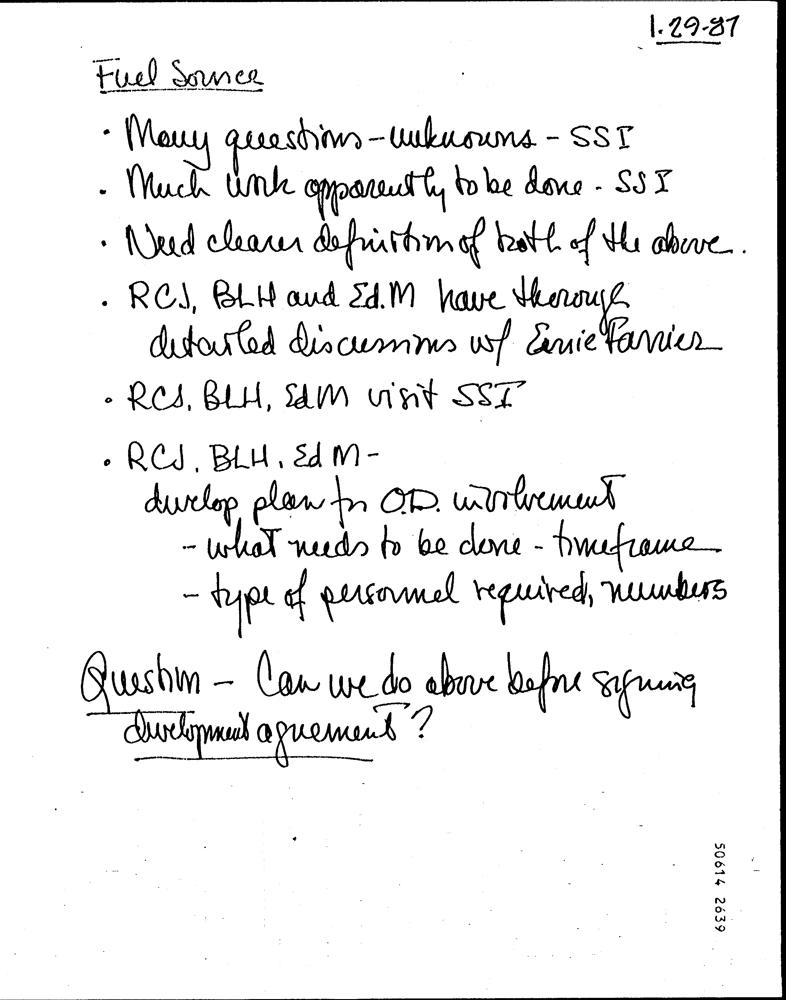 1-29-87
Fuel Source
• Many questions - unknowns - SSI
• Much work apparently to be done - SSI
• Need clearer definition of both of the above.
• RCJ, BLH and Ed.M have thorough
detailed discussions w/ Ernie Farrier
• RCJ, BLH, EdM visit SSI
• RCJ, BLH, Ed M -
develop plan for O.D. involvement
- what needs to be done - timeframe
- type of personnel required, numbers
Question - Can we do above before signing
development agreement?
50614 2639